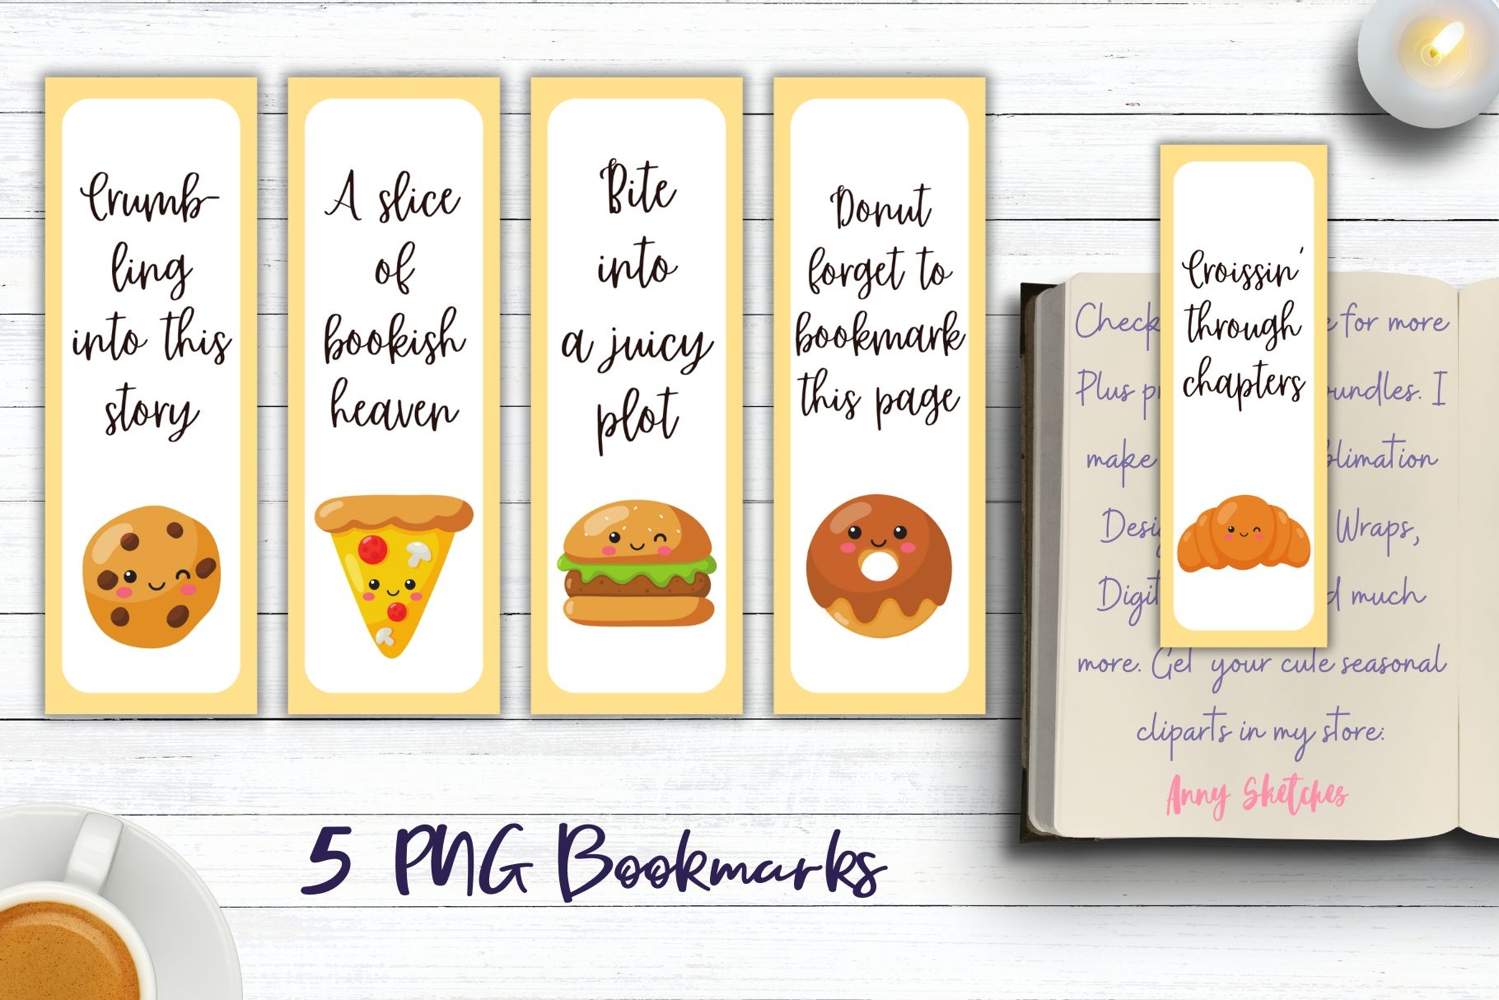 Crumb-
ling
into this
story
A slice
of
bookish
heaven
Bite
into
a juicy
plot
Donut
forget to
bookmark
this page
Croissin'
through
chapters
Check for more
Plus bundles. I
make
Wraps,
much
more. Get your cute seasonal
cliparts in my store:
Anny Sketches
5 PNG Bookmarks